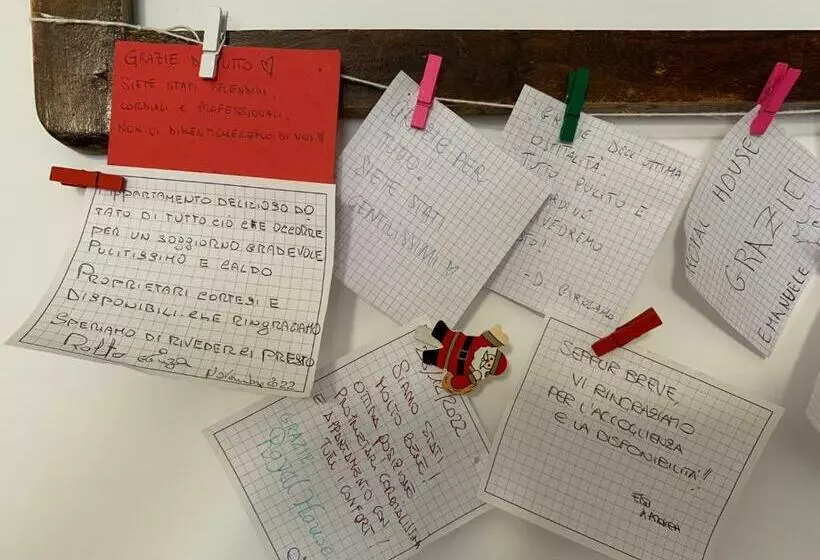 GRAZIE DI TUTTO ♡
SIETE STATI SPLENDIDI,
CORDIALI E PROFESSIONALI.
NON CI DIMENTICHEREMO DI VOI!!
APPARTAMENTO DELIZIOSO DO
TATO DI TUTTO CIÒ CHE OCCORRE
PER UN SOGGIORNO GRADEVOLE
PULITISSIMO E CALDO
PROPRIETARI CORTESI E
DISPONIBILI CHE RINGRAZIAMO
SPERIAMO DI RIVEDERCI PRESTO
Novembre 2022
GRAZIE PER
TUTTO!!
SIETE STATI
GENTILISSIMI
GRAZIE DELL'OTTIMA
OSPITALITÀ.
TUTTO PULITO E
- D. GIROLAMO
ROYAL HOUSE
GRAZIE!
EMANUELE
/2022
SIAMO STATI
MOLTO BENE!
OTTIMA POSIZIONE
PROPRIETARIA CORDIALISSIMA
E APPARTAMENTO CON
TUTTI I CONFORT!
GRAZIE
Royal House
SEPPUR BREVE,
VI RINGRAZIAMO
PER L'ACCOGLIENZA
E LA DISPONIBILITÀ!!